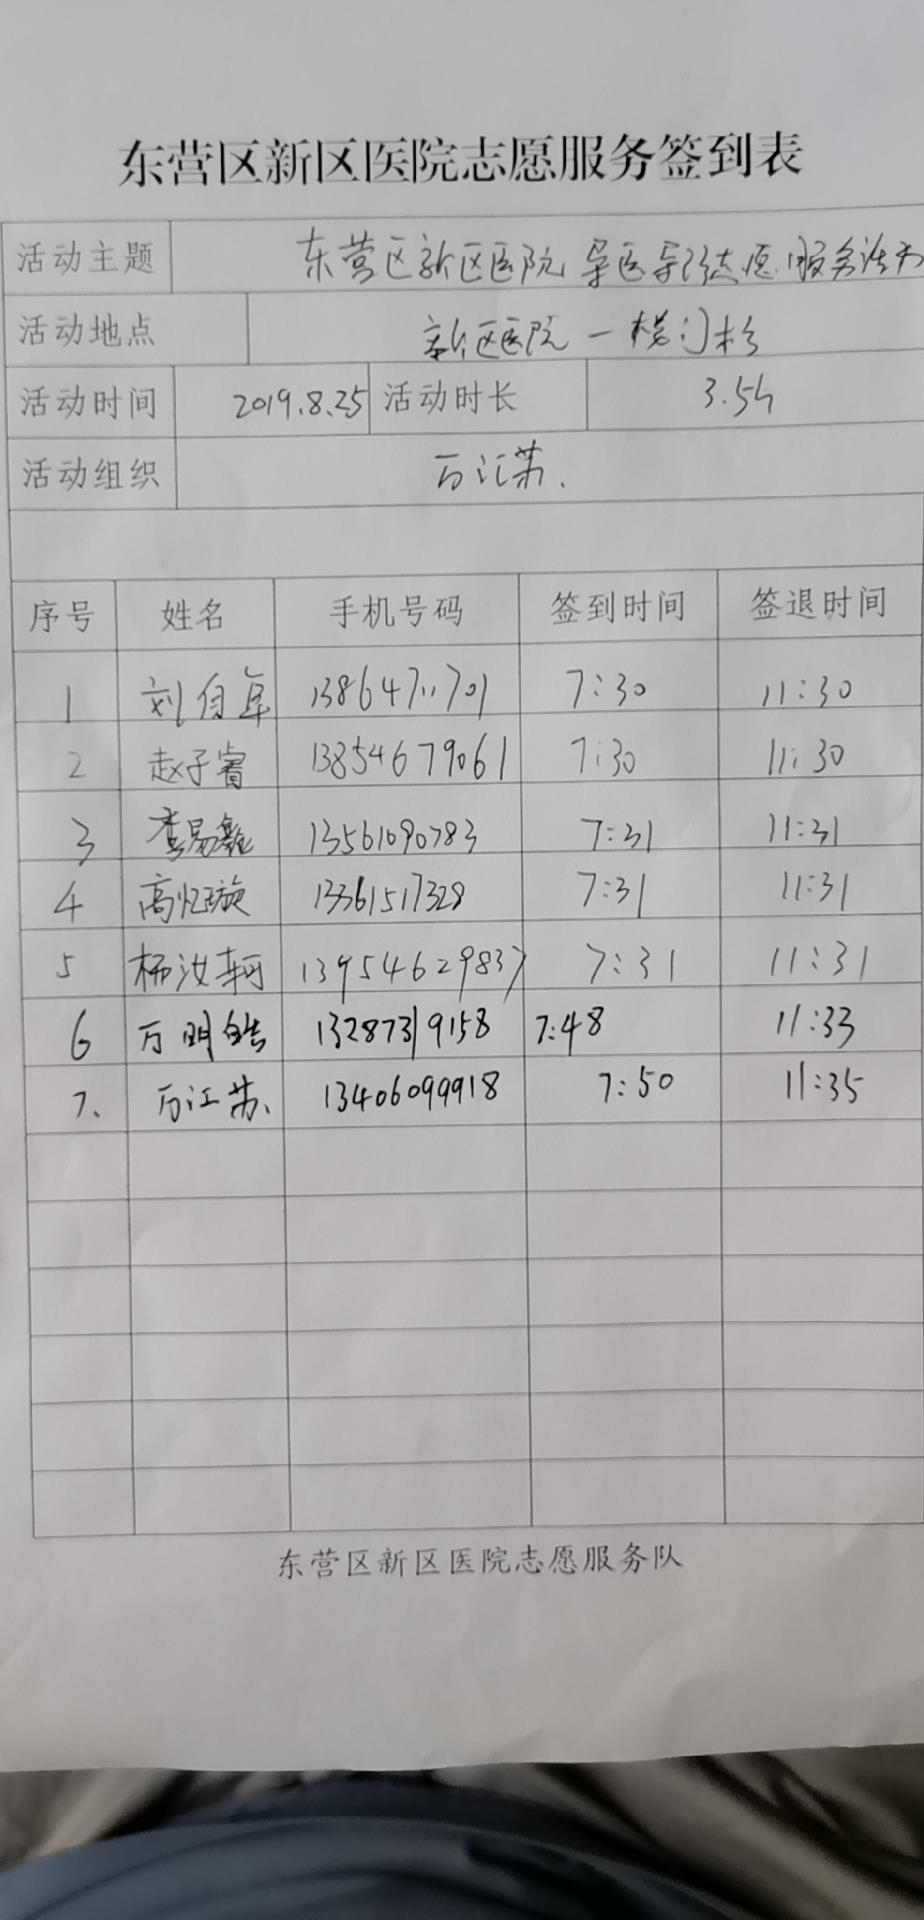 东营区新区医院志愿服务签到表
活动主题 东营区新区医院导医导引志愿服务活动
活动地点 新区医院一楼门诊
活动时间 2019.8.25 活动时长 3.5h
活动组织 万江苏.
序号 姓名 手机号码 签到时间 签退时间
1 刘自军 13864711701 7:30 11:30
2 赵子睿 13854679061 7:30 11:30
3 李易 13561090783 7:31 11:31
4 高忆璇 13361517328 7:31 11:31
5 杨汝轲 13954629837 7:31 11:31
6 万明皓 13287319158 7:48 11:33
7. 万江苏. 13406099918 7:50 11:35
东营区新区医院志愿服务队